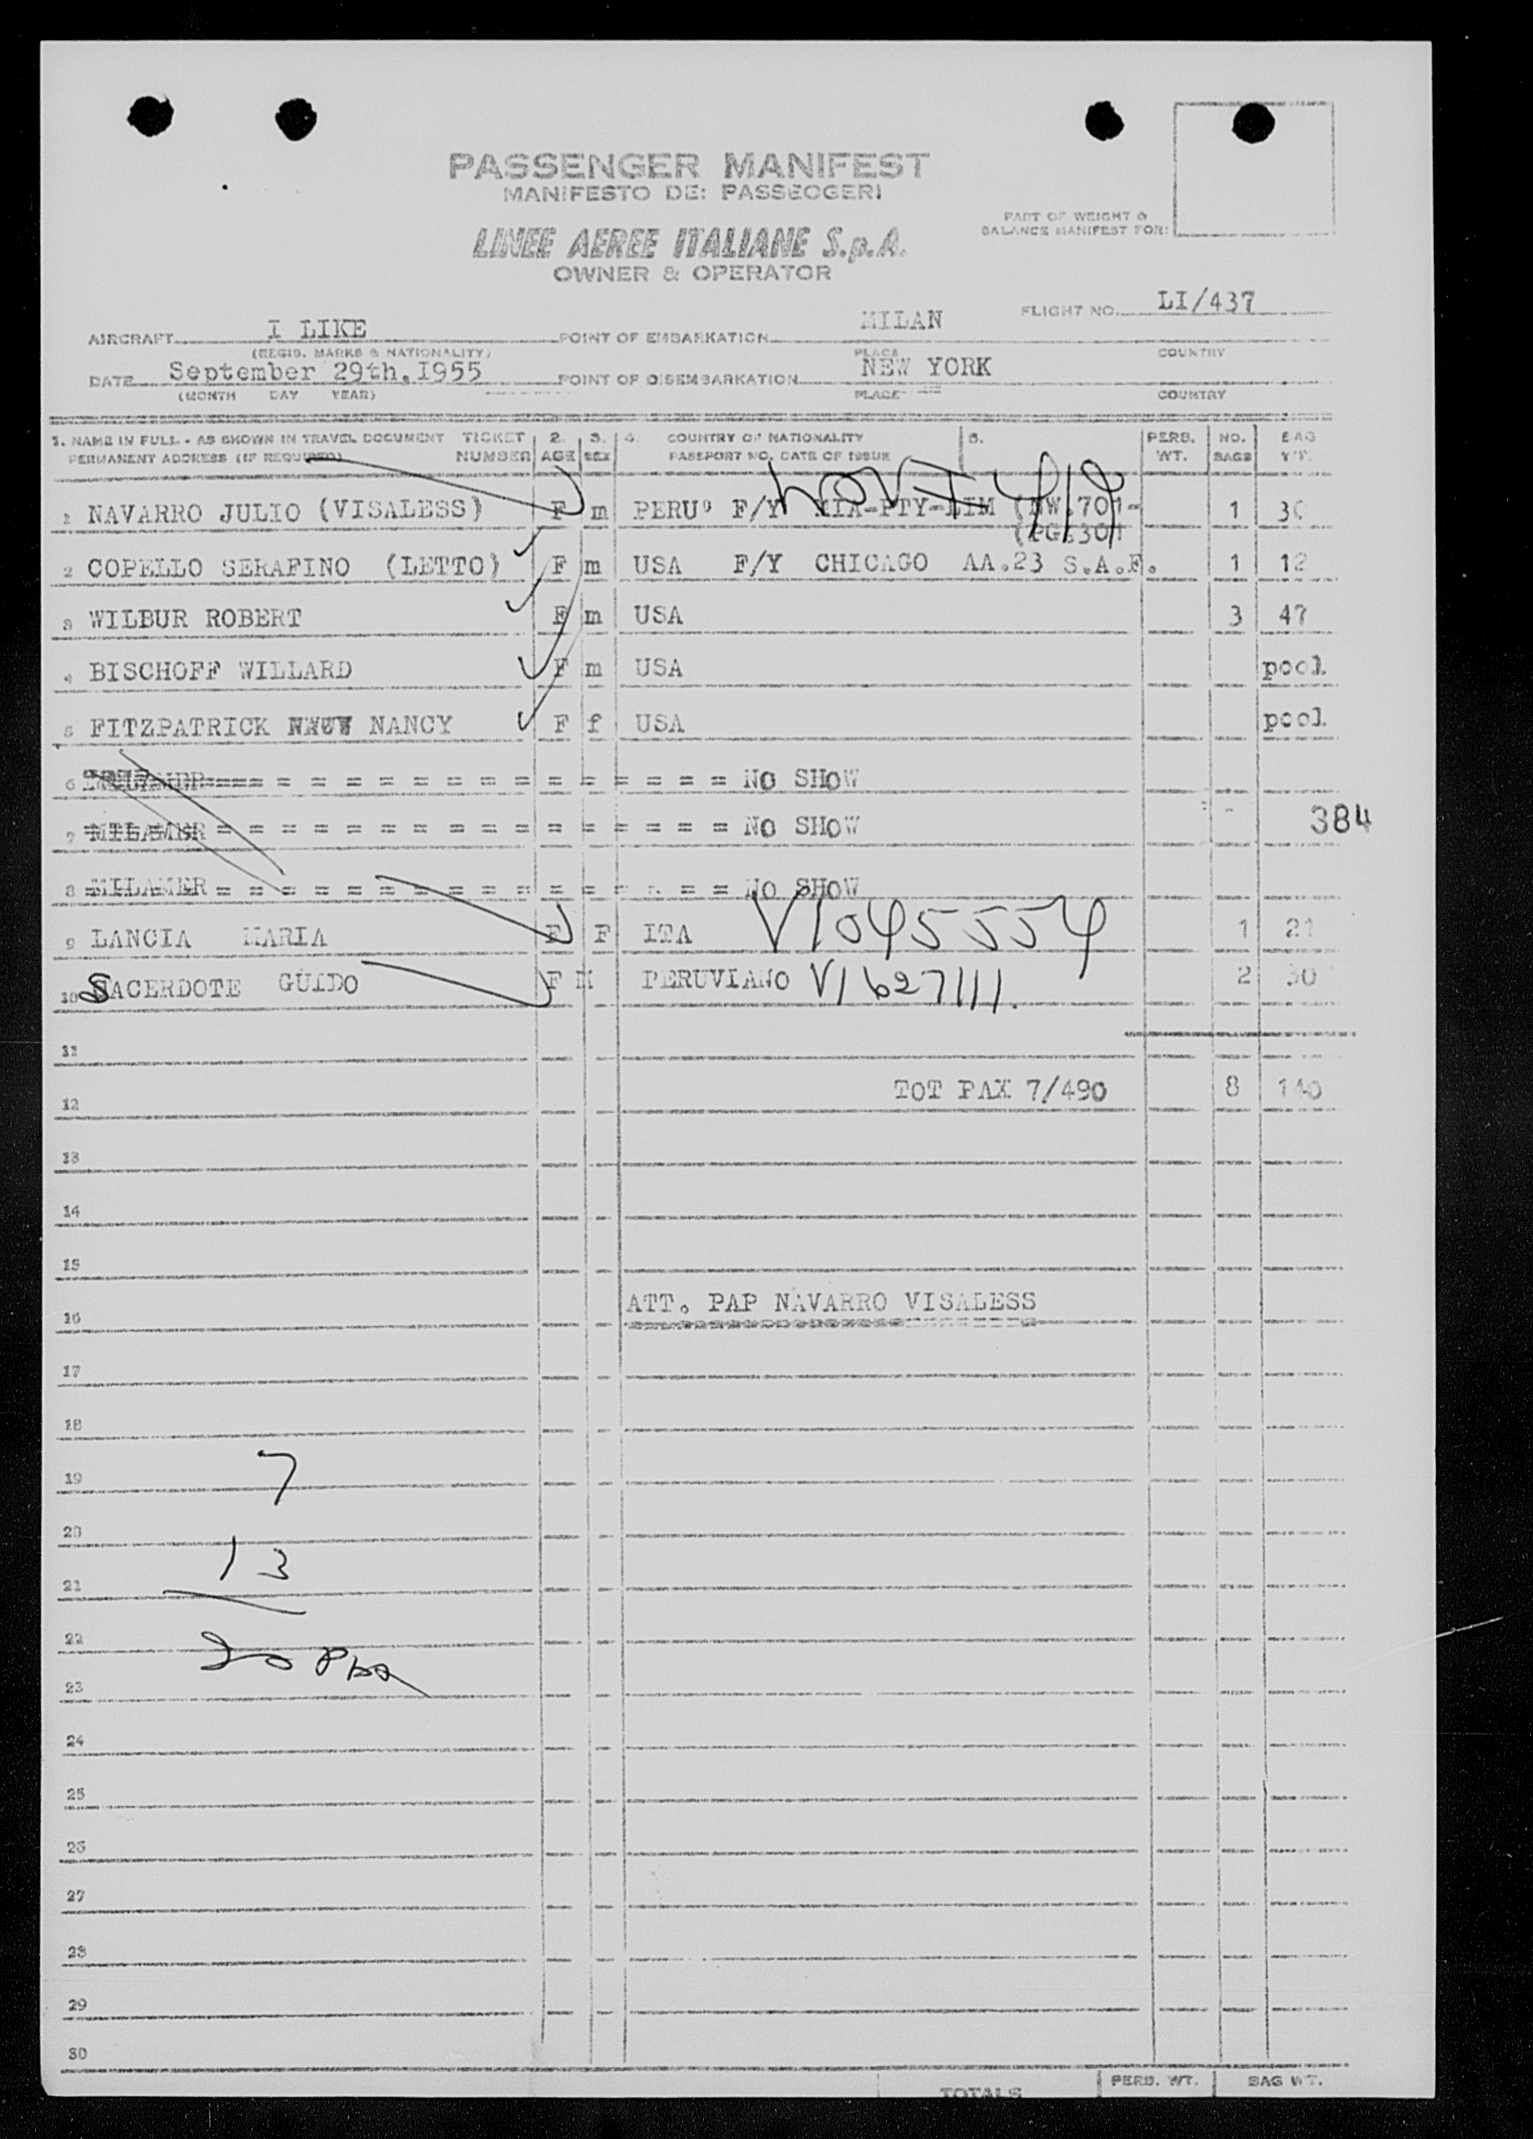 PASSENGER MANIFEST
MANIFESTO DEI PASSEGGERI
LINEE AEREE ITALIANE S.p.A.
OWNER & OPERATOR
PART OF WEIGHT &
BALANCE MANIFEST FOR:
FLIGHT NO. LI/437
AIRCRAFT I LIKE POINT OF EMBARKATION MILAN
(REGIS. MARKS & NATIONALITY) PLACE COUNTRY
DATE September 29th.1955 POINT OF DISEMBARKATION NEW YORK
(MONTH DAY YEAR) PLACE COUNTRY
1. NAME IN FULL - AS SHOWN IN TRAVEL DOCUMENT TICKET 2. 3. 4. COUNTRY OF NATIONALITY 5. PERS. NO. BAG
PERMANENT ADDRESS (IF REQUIRED) NUMBER AGE SEX PASSPORT NO. DATE OF ISSUE WT. BAGS WT.
1 NAVARRO JULIO (VISALESS) F m PERU° F/Y MIA-PTY-LIM 1 30
2 COPELLO SERAFINO (LETTO) F m USA F/Y CHICAGO AA.23 S.A.F. 1 12
3 WILBUR ROBERT F m USA 3 47
4 BISCHOFF WILLARD F m USA pool
5 FITZPATRICK NANCY F f USA pool
6 = = = = NO SHOW
7 MILAMER = = = = NO SHOW
384
8 MILAMER = = = = NO SHOW
9 LANCIA MARIA F F ITA V1045554 1 21
10 SACERDOTE GUIDO F M PERUVIANO V1627111. 2 30
11
TOT PAX 7/490 8 140
12
13
14
15
ATT. PAP NAVARRO VISALESS
16
17
18
19 7
20
13
21
22
20
23
24
25
26
27
28
29
30
TOTALS PERS. WT. BAG WT.